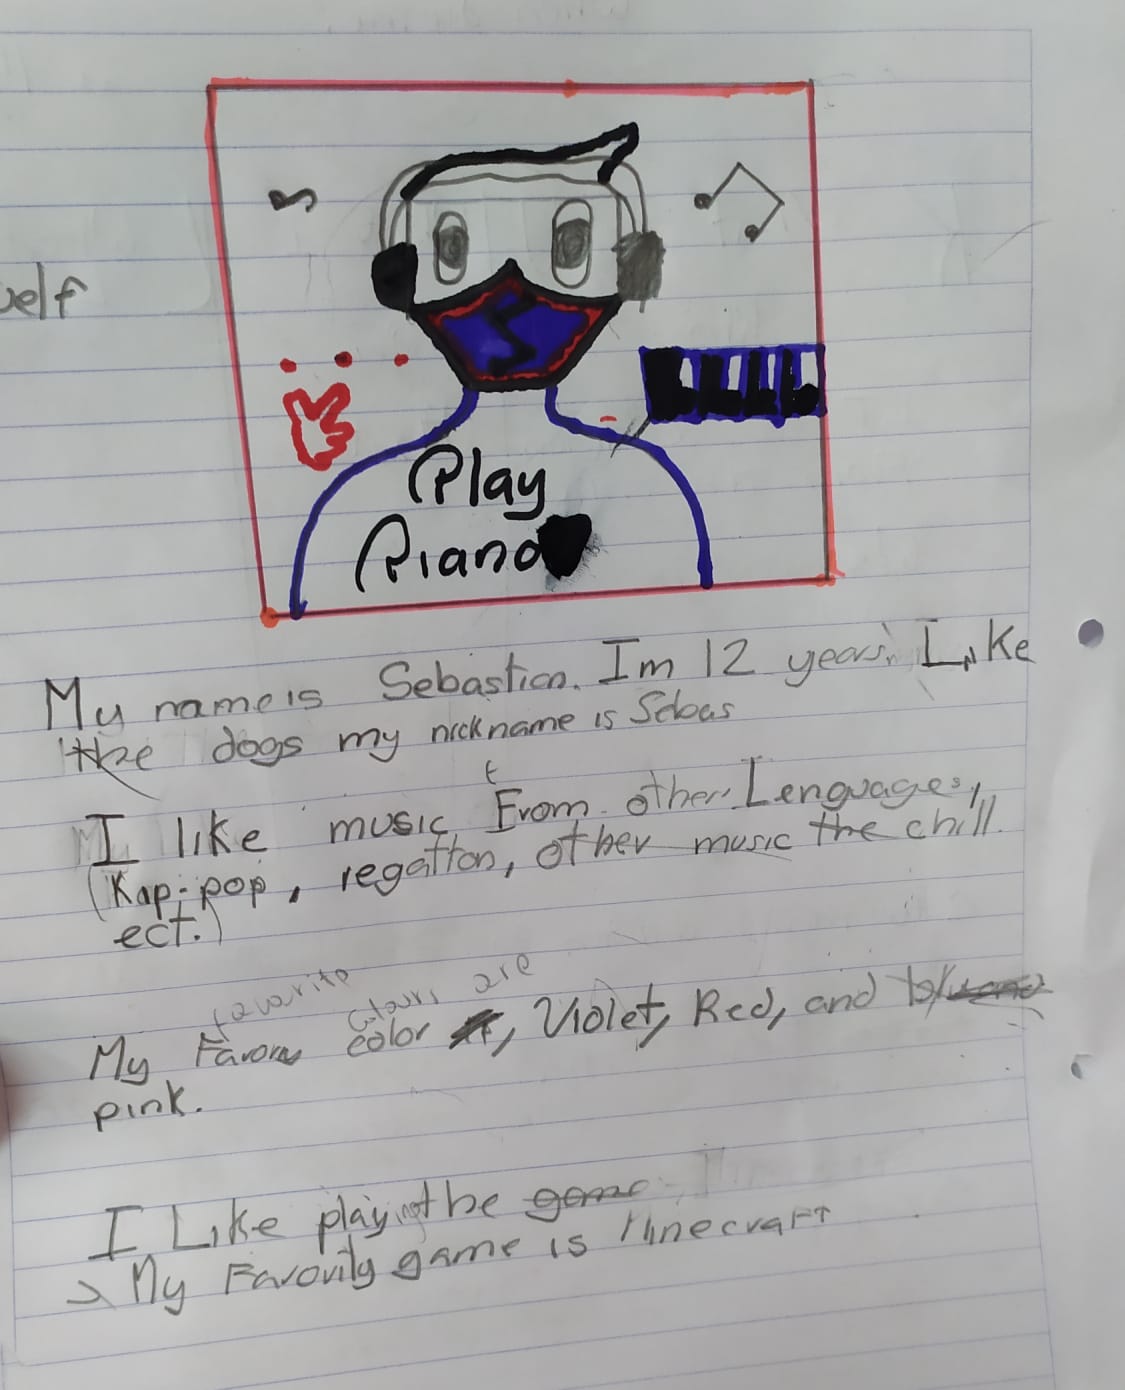 uelf
S
Play
Piano
My name is Sebastian. Im 12 years. Like
the dogs my nickname is Sebas
I like music From other Lenguages,
(Kap-pop, regatton, other music the chill.
ect.)
favorite colours are
My Favori color, Violet, Red, and
pink.
I Like playing the game
My Favorily game is Minecraft